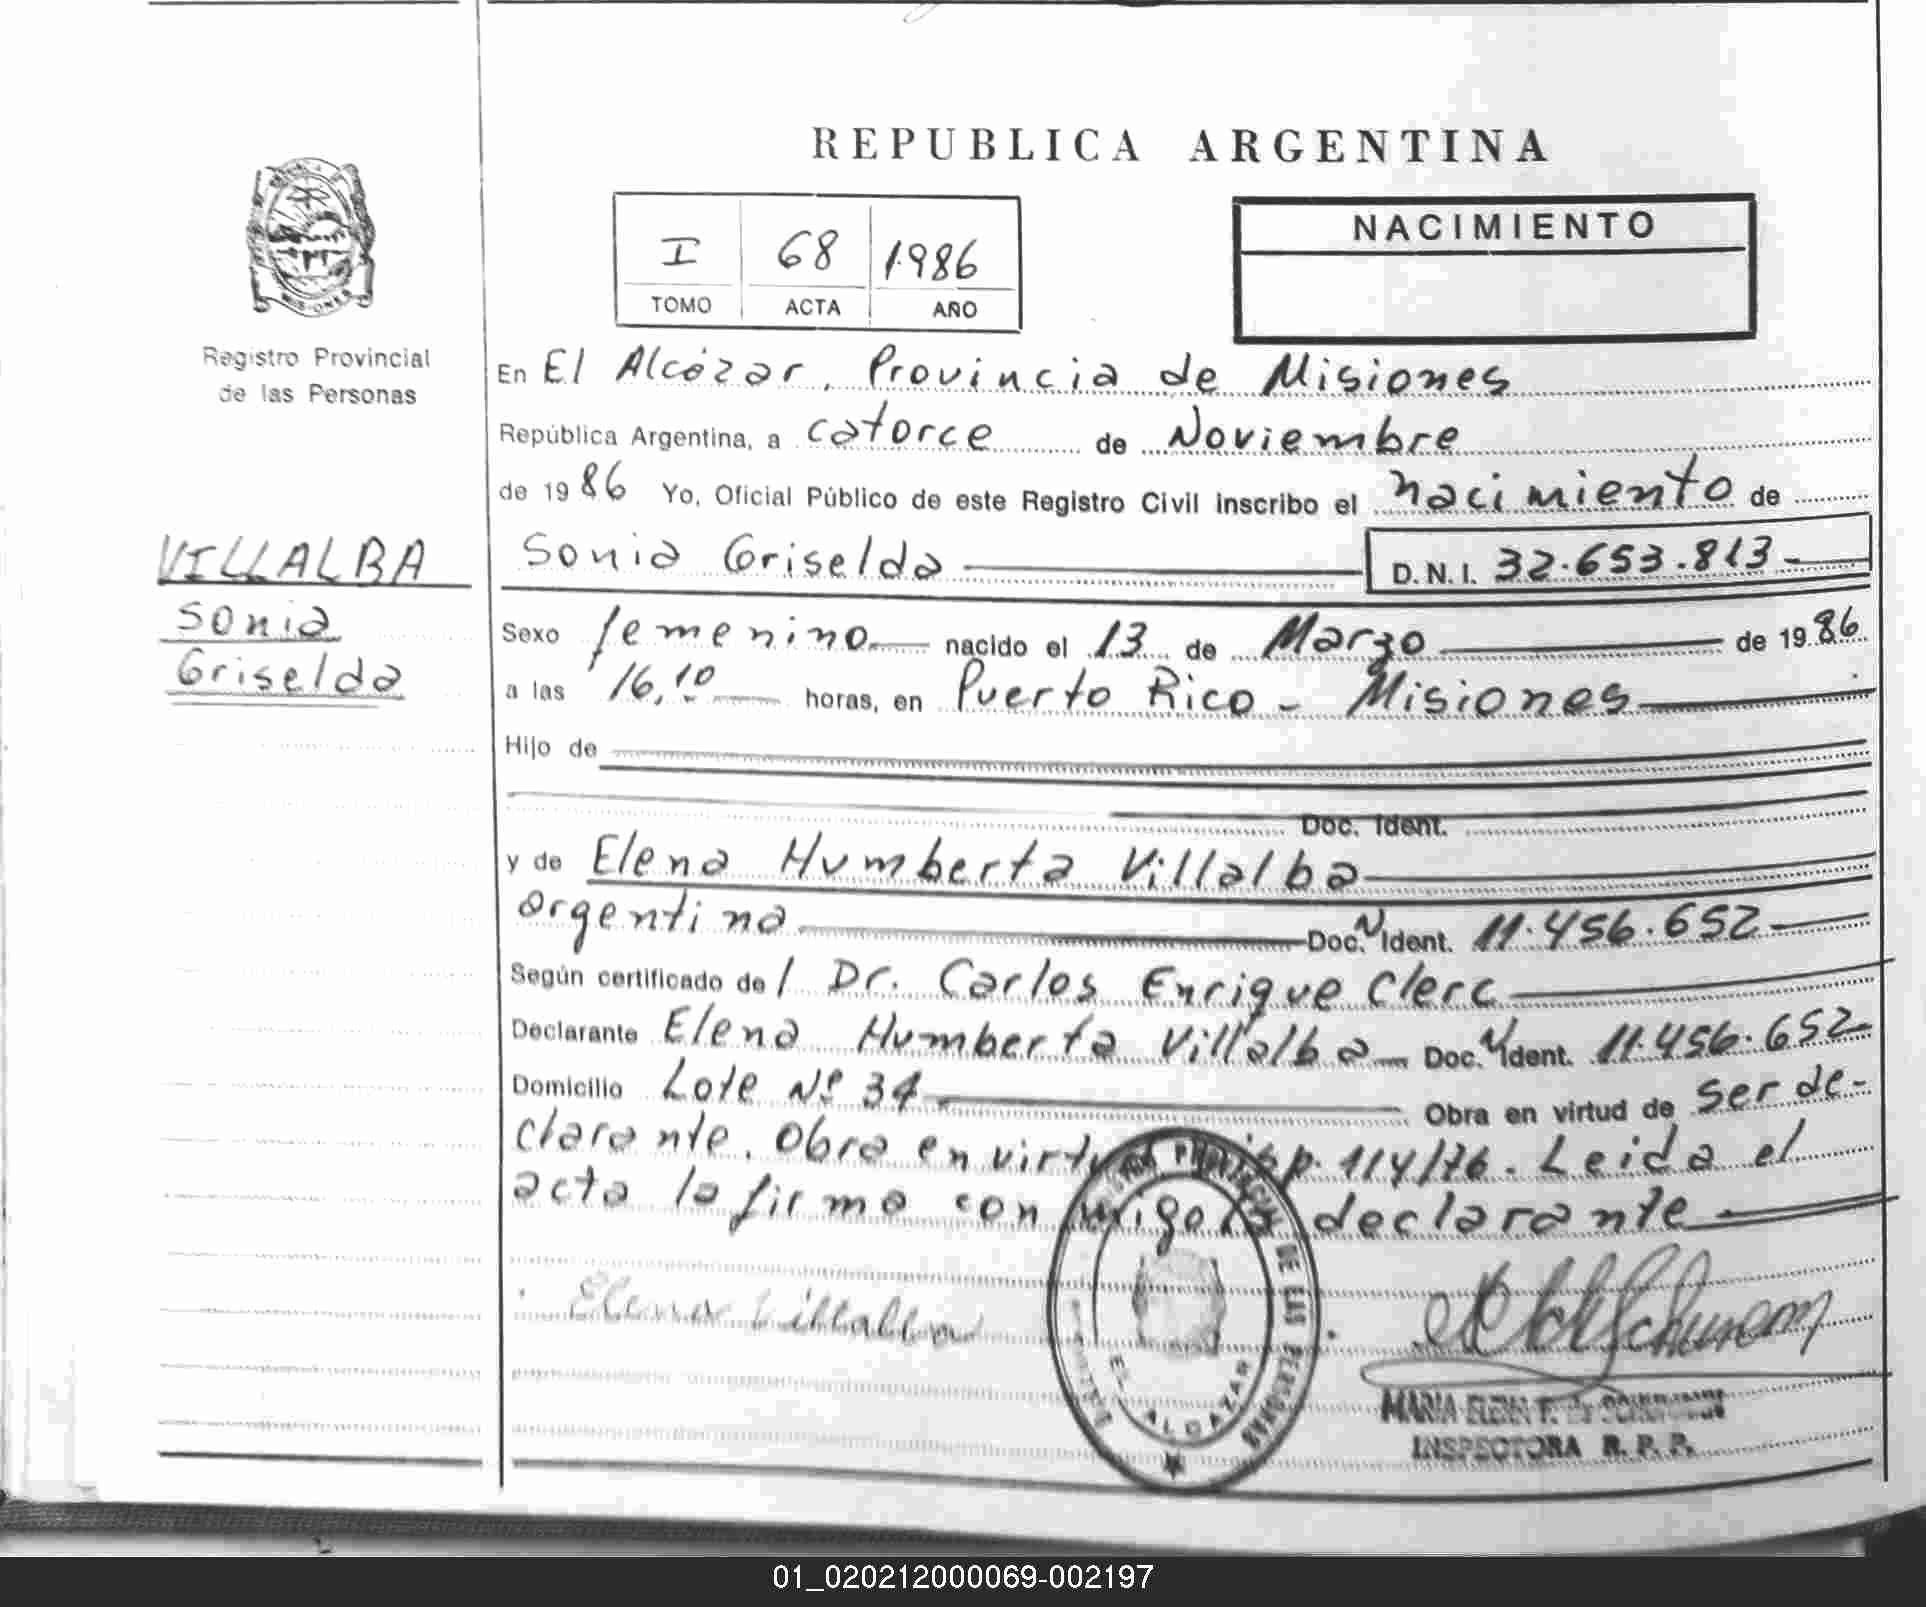 REPUBLICA ARGENTINA
MISIONES
Registro Provincial
de las Personas
I 68 1986
TOMO ACTA AÑO
NACIMIENTO
En El Alcázar, Provincia de Misiones
República Argentina, a catorce de Noviembre
de 1986 Yo, Oficial Público de este Registro Civil inscribo el nacimiento de
VILLALBA
Sonia
Griselda
Sonia Griselda D.N.I. 32.653.813
Sexo femenino nacido el 13 de Marzo de 1986
a las 16,10 horas, en Puerto Rico - Misiones
Hijo de
Doc. Ident.
y de Elena Humberta Villalba
argentina Doc. N Ident. 11.456.652
Según certificado de / Dr. Carlos Enrique Clerc
Declarante Elena Humberta Villalba Doc. N Ident. 11.456.652
Domicilio Lote Nº 34 Obra en virtud de ser de-
clarante. Obra en virtud Disp. 114/76. Leida el
acta la firma con migo la declarante
Elena Villalba
REGISTRO PROVINCIAL DE LAS PERSONAS
EL ALCAZAR
MARIA ELENA F. de
INSPECTORA R. P. P.
01_020212000069-002197